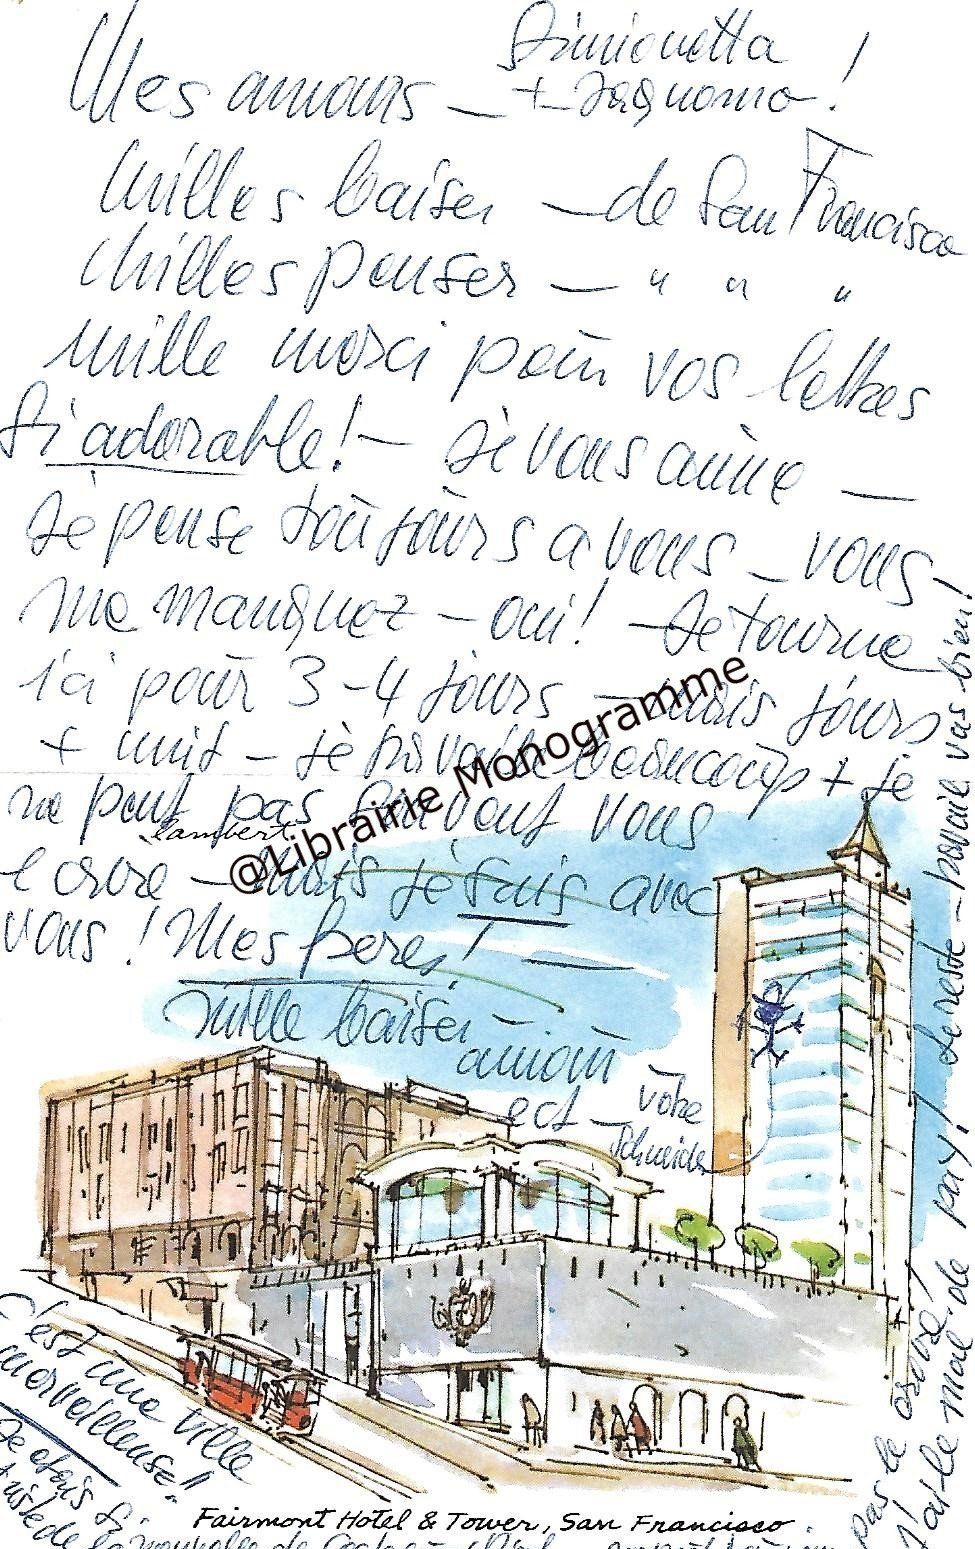 Mes amours — Simionetta
+ Jaquomo !
Milles baiser — de San Francisco
Milles penser — " " "
mille merci pour vos lettres
Si adorable! — Je vous aime —
Je pense toujours a vous — vous
me manquez — oui! — Je tourne
ici pour 3-4 jours — mais jours
+ nuit — je travaille beaucoup + je
ne peut pas souvent vous
lambert
ecrire — mais je suis avec
vous ! Mes frere !
mille baiser —
amour
ect — votre
Schneider
C'est une ville
merveilleuse!!
Je etais si
triste de
la nouvelle de
pas le ecrire!
j'ai le mal de pay! Le reste — travail vas bien!
Fairmont Hotel & Tower, San Francisco
@Librairie Monogramme